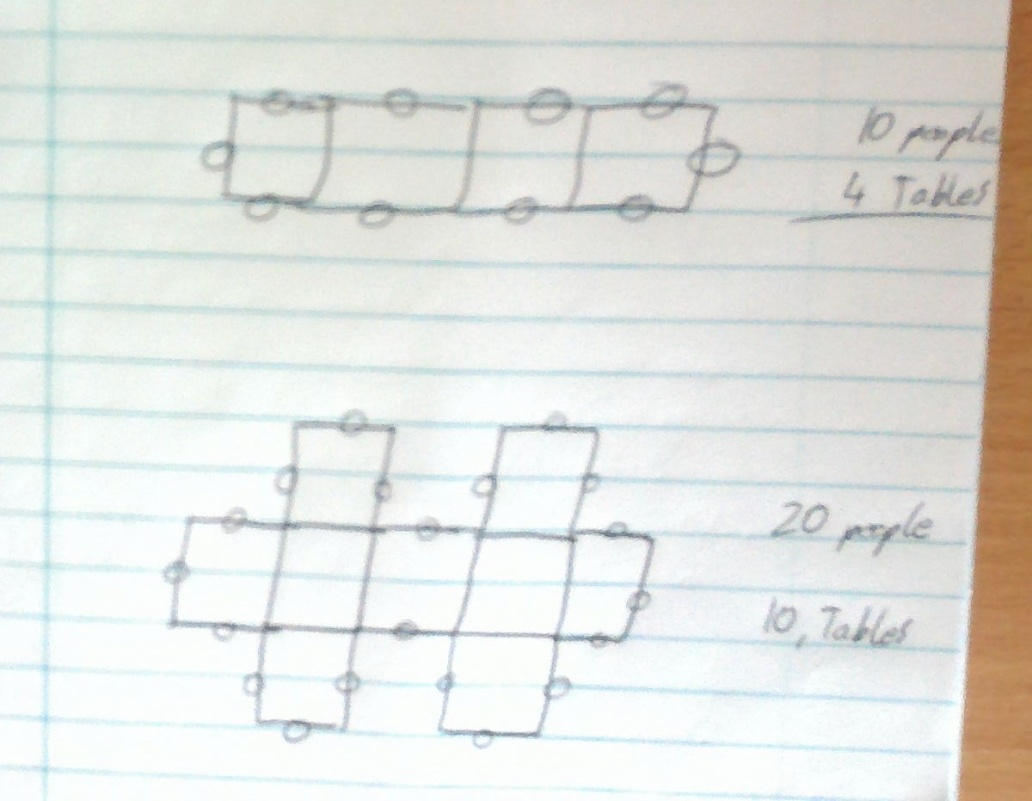 10 people
4 Tables
20 people
10, Tables